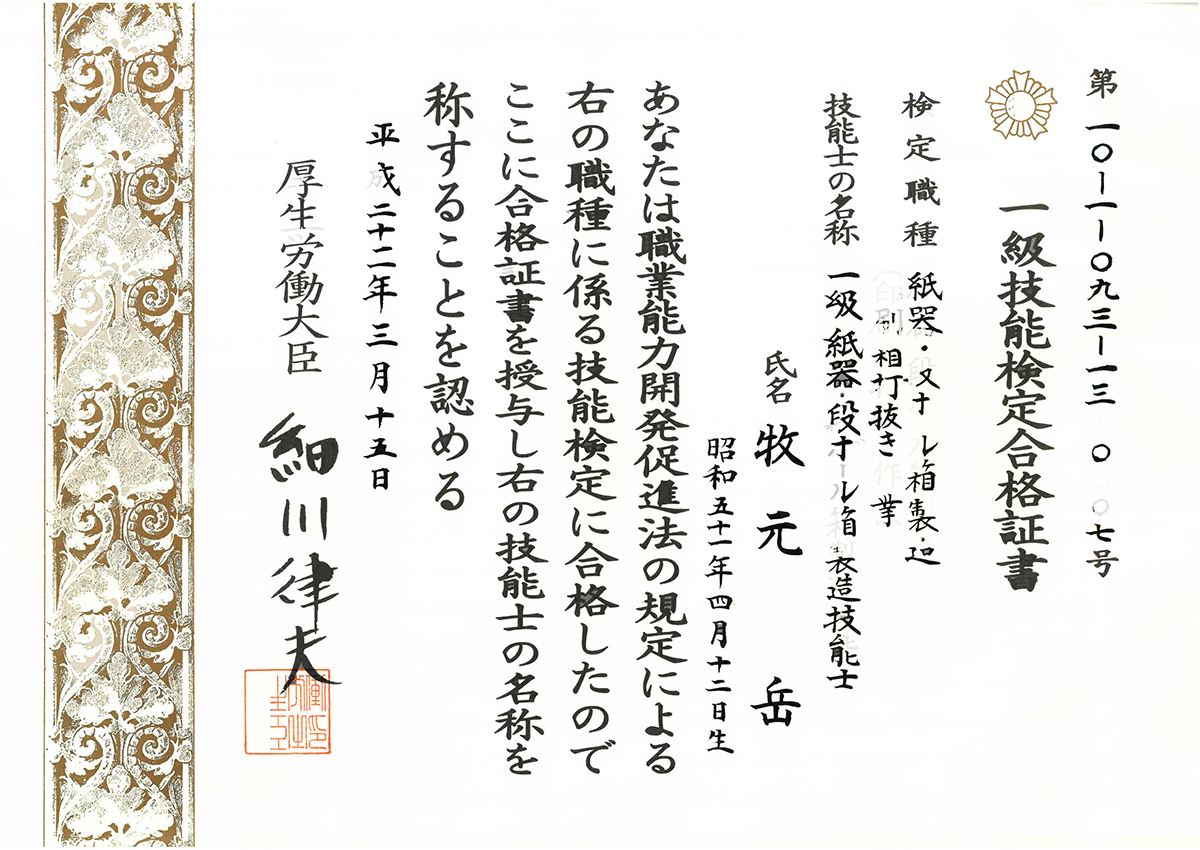 第一〇ー一ー〇九三ー一三ー〇〇〇七号
一級技能検定合格証書
検定職種 紙器・段ボール箱製造
(印刷箱打抜き作業)
技能士の名称 一級紙器・段ボール箱製造技能士
氏名 牧元 岳
昭和五十一年四月十二日生
あなたは職業能力開発促進法の規定による
右の職種に係る技能検定に合格したので
ここに合格証書を授与し右の技能士の名称を
称することを認める
平成二十二年三月十五日
厚生労働大臣 細川律夫